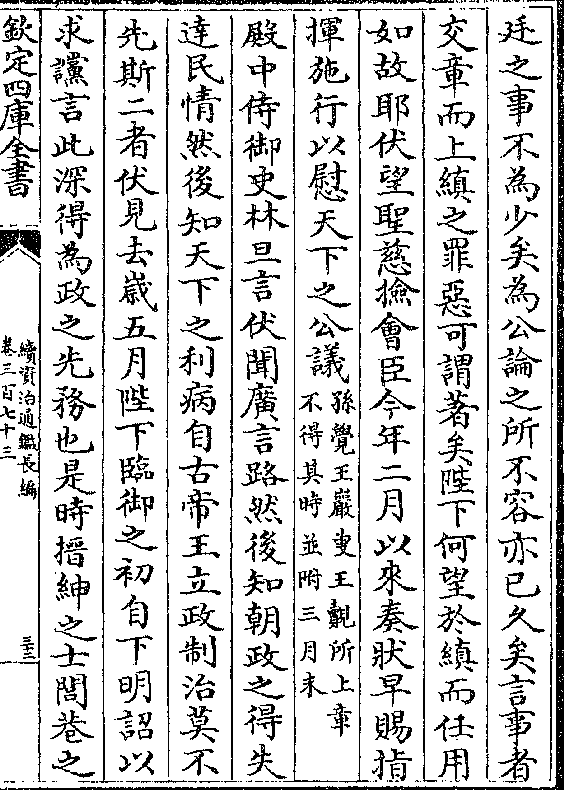 廷之事不為少矣為公論之所不容亦已久矣言事者
交章而上縝之罪惡可謂著矣陛下何望於縝而任用
如故耶伏望聖慈撿會臣今年二月以來奏狀早賜指
揮施行以慰天下之公議孫覺王巖叟王覿所上章
不得其時並附三月末
殿中侍御史林旦言伏聞廣言路然後知朝政之得失
達民情然後知天下之利病自古帝王立政制治莫不
先斯二者伏見去嵗五月陛下臨御之初自下明詔以
求讜言此深得為政之先務也是時搢紳之士閭巷之
欽定四庫全書
續資治通鑑長編
卷三百七十三
三十三